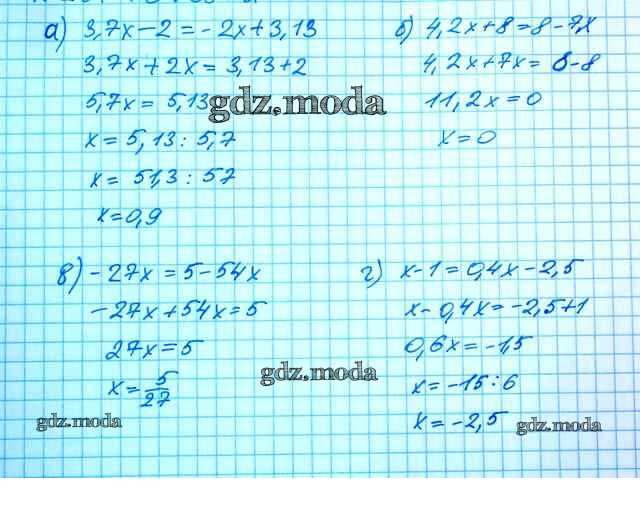 а) 3,7x-2=-2x+3,13
3,7x+2x=3,13+2
5,7x=5,13
x=5,13:5,7
x=51,3:57
x=0,9
б) 4,2x+8=8-7x
4,2x+7x=8-8
11,2x=0
x=0
gdz.moda
в) -27x=5-54x
-27x+54x=5
27x=5
x=5/27
г) x-1=0,4x-2,5
x-0,4x=-2,5+1
0,6x=-1,5
x=-15:6
x=-2,5
gdz.moda
gdz.moda
gdz.moda